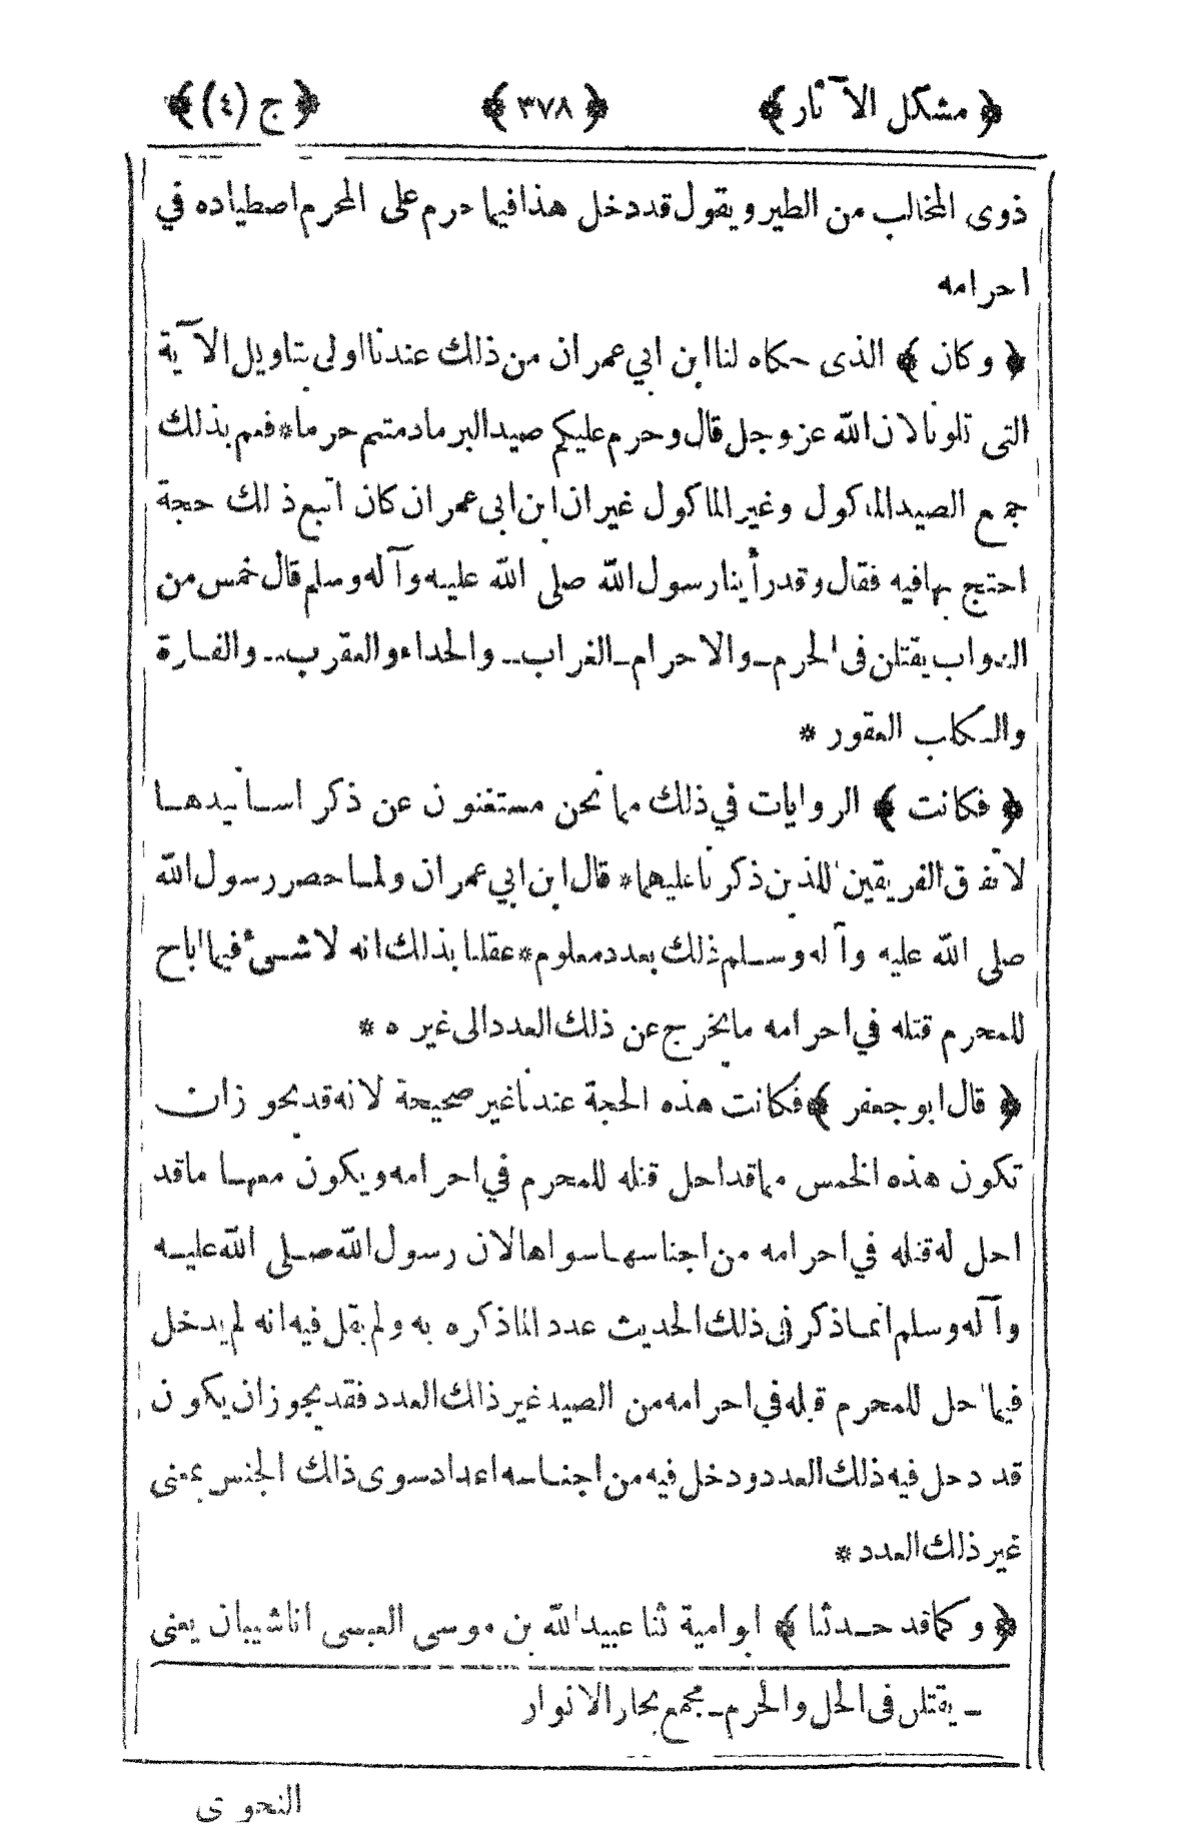 ﴿ مشكل الآثار ﴾ ﴿ ٣٧٨ ﴾ ﴿ ج (٤) ﴾
ذوى المخالب من الطير ويقول قد دخل هذا فيما حرم على المحرم اصطياده في
احرامه
﴿ وكان ﴾ الذى حكاه لنا ابن ابي عمران من ذلك عندنا اولى بتاويل الآية
التى تلونا لان الله عز وجل قال وحرم عليكم صيد البر ما دمتم حرما * فعم بذلك
جميع الصيد الماكول وغير الماكول غير ان ابن ابى عمران كان اتبع ذلك حجة
احتج بها فيه فقال وقد رأينا رسول الله صلى الله عليه وآله وسلم قال خمس من
الدواب يقتلن فى الحرم ـ والاحرام ـ الغراب ـ والحداء والعقرب ـ والفارة
والكلب العقور *
﴿ فكانت ﴾ الروايات في ذلك مما نحن مستغنون عن ذكر اسانيدها
لاتفاق الفريقين اللذين ذكرنا عليهما * قال ابن ابي عمران ولما حصر رسول الله
صلى الله عليه وآله وسلم ذلك بعدد معلوم * عقلنا بذلك انه لا شىء فيما اباح
للمحرم قتله في احرامه ما يخرج عن ذلك العدد الى غيره *
﴿ قال ابو جعفر ﴾ فكانت هذه الحجة عندنا غير صحيحة لانه قد يجوز ان
تكون هذه الخمس مما قد احل قتله للمحرم في احرامه ويكون معها ما قد
احل له قتله في احرامه من اجناسها سواها لان رسول الله صلى الله عليه
وآله وسلم انما ذكر فى ذلك الحديث عدد الماذكره به ولم يقل فيه انه لم يدخل
فيما احل للمحرم قبله في احرامه من الصيد غير ذلك العدد فقد يجوز ان يكون
قد دخل فيه ذلك العدد ودخل فيه من اجناسه اعداد سوى ذلك الجنس بمعنى
غير ذلك العدد *
﴿ وكما قد حدثنا ﴾ ابو امية ثنا عبيد الله بن موسى العبسى انا شيبان يعنى
ـ يقتلن فى الحل والحرم ـ مجمع بحار الانوار
النحوى